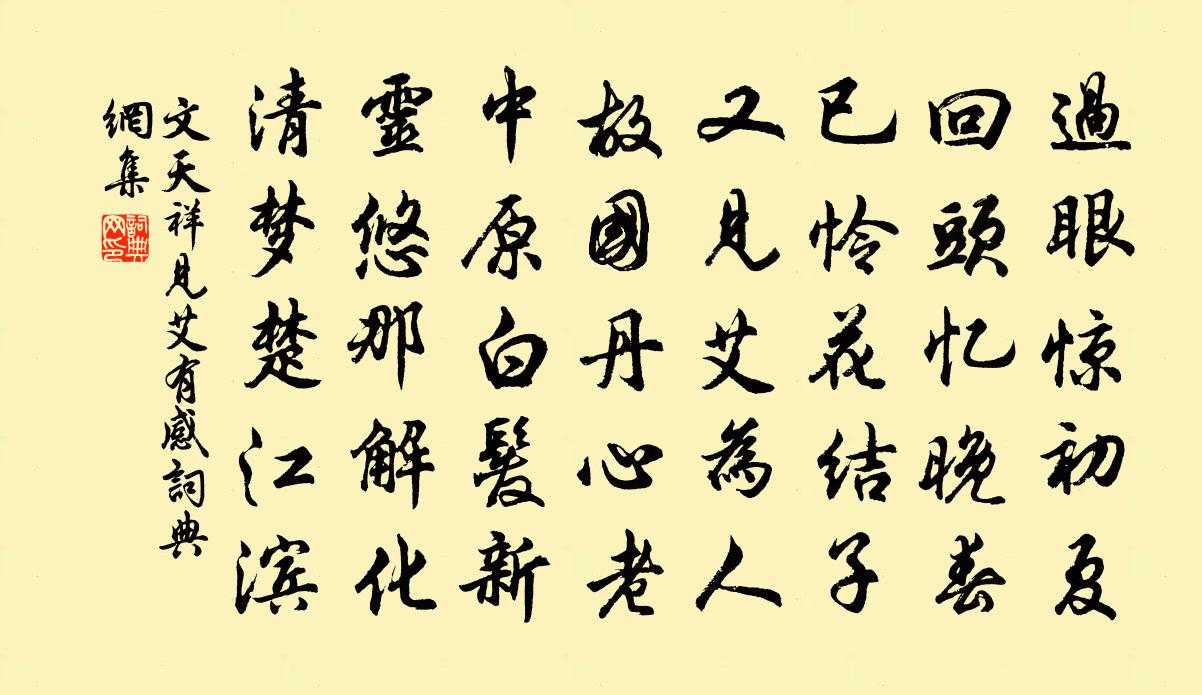 過眼惊初夏
回頭忆晚春
已怜花结子
又見艾為人
故國丹心老
中原白髮新
靈悠那解化
清梦楚江滨
文天祥見艾有感詞典
網集
詞典
网印